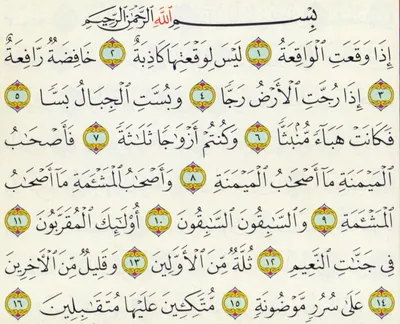 بِسْمِ اللَّهِ الرَّحْمَٰنِ الرَّحِيمِ
إِذَا وَقَعَتِ الْوَاقِعَةُ ١ لَيْسَ لِوَقْعَتِهَا كَاذِبَةٌ ٢ خَافِضَةٌ رَّافِعَةٌ
٣ إِذَا رُجَّتِ الْأَرْضُ رَجًّا ٤ وَبُسَّتِ الْجِبَالُ بَسًّا ٥
فَكَانَتْ هَبَاءً مُّنبَثًّا ٦ وَكُنتُمْ أَزْوَاجًا ثَلَاثَةً ٧ فَأَصْحَابُ
الْمَيْمَنَةِ مَا أَصْحَابُ الْمَيْمَنَةِ ٨ وَأَصْحَابُ الْمَشْأَمَةِ مَا أَصْحَابُ
الْمَشْأَمَةِ ٩ وَالسَّابِقُونَ السَّابِقُونَ ١٠ أُولَٰئِكَ الْمُقَرَّبُونَ ١١
فِي جَنَّاتِ النَّعِيمِ ١٢ ثُلَّةٌ مِّنَ الْأَوَّلِينَ ١٣ وَقَلِيلٌ مِّنَ الْآخِرِينَ
١٤ عَلَىٰ سُرُرٍ مَّوْضُونَةٍ ١٥ مُّتَّكِئِينَ عَلَيْهَا مُتَقَابِلِينَ ١٦